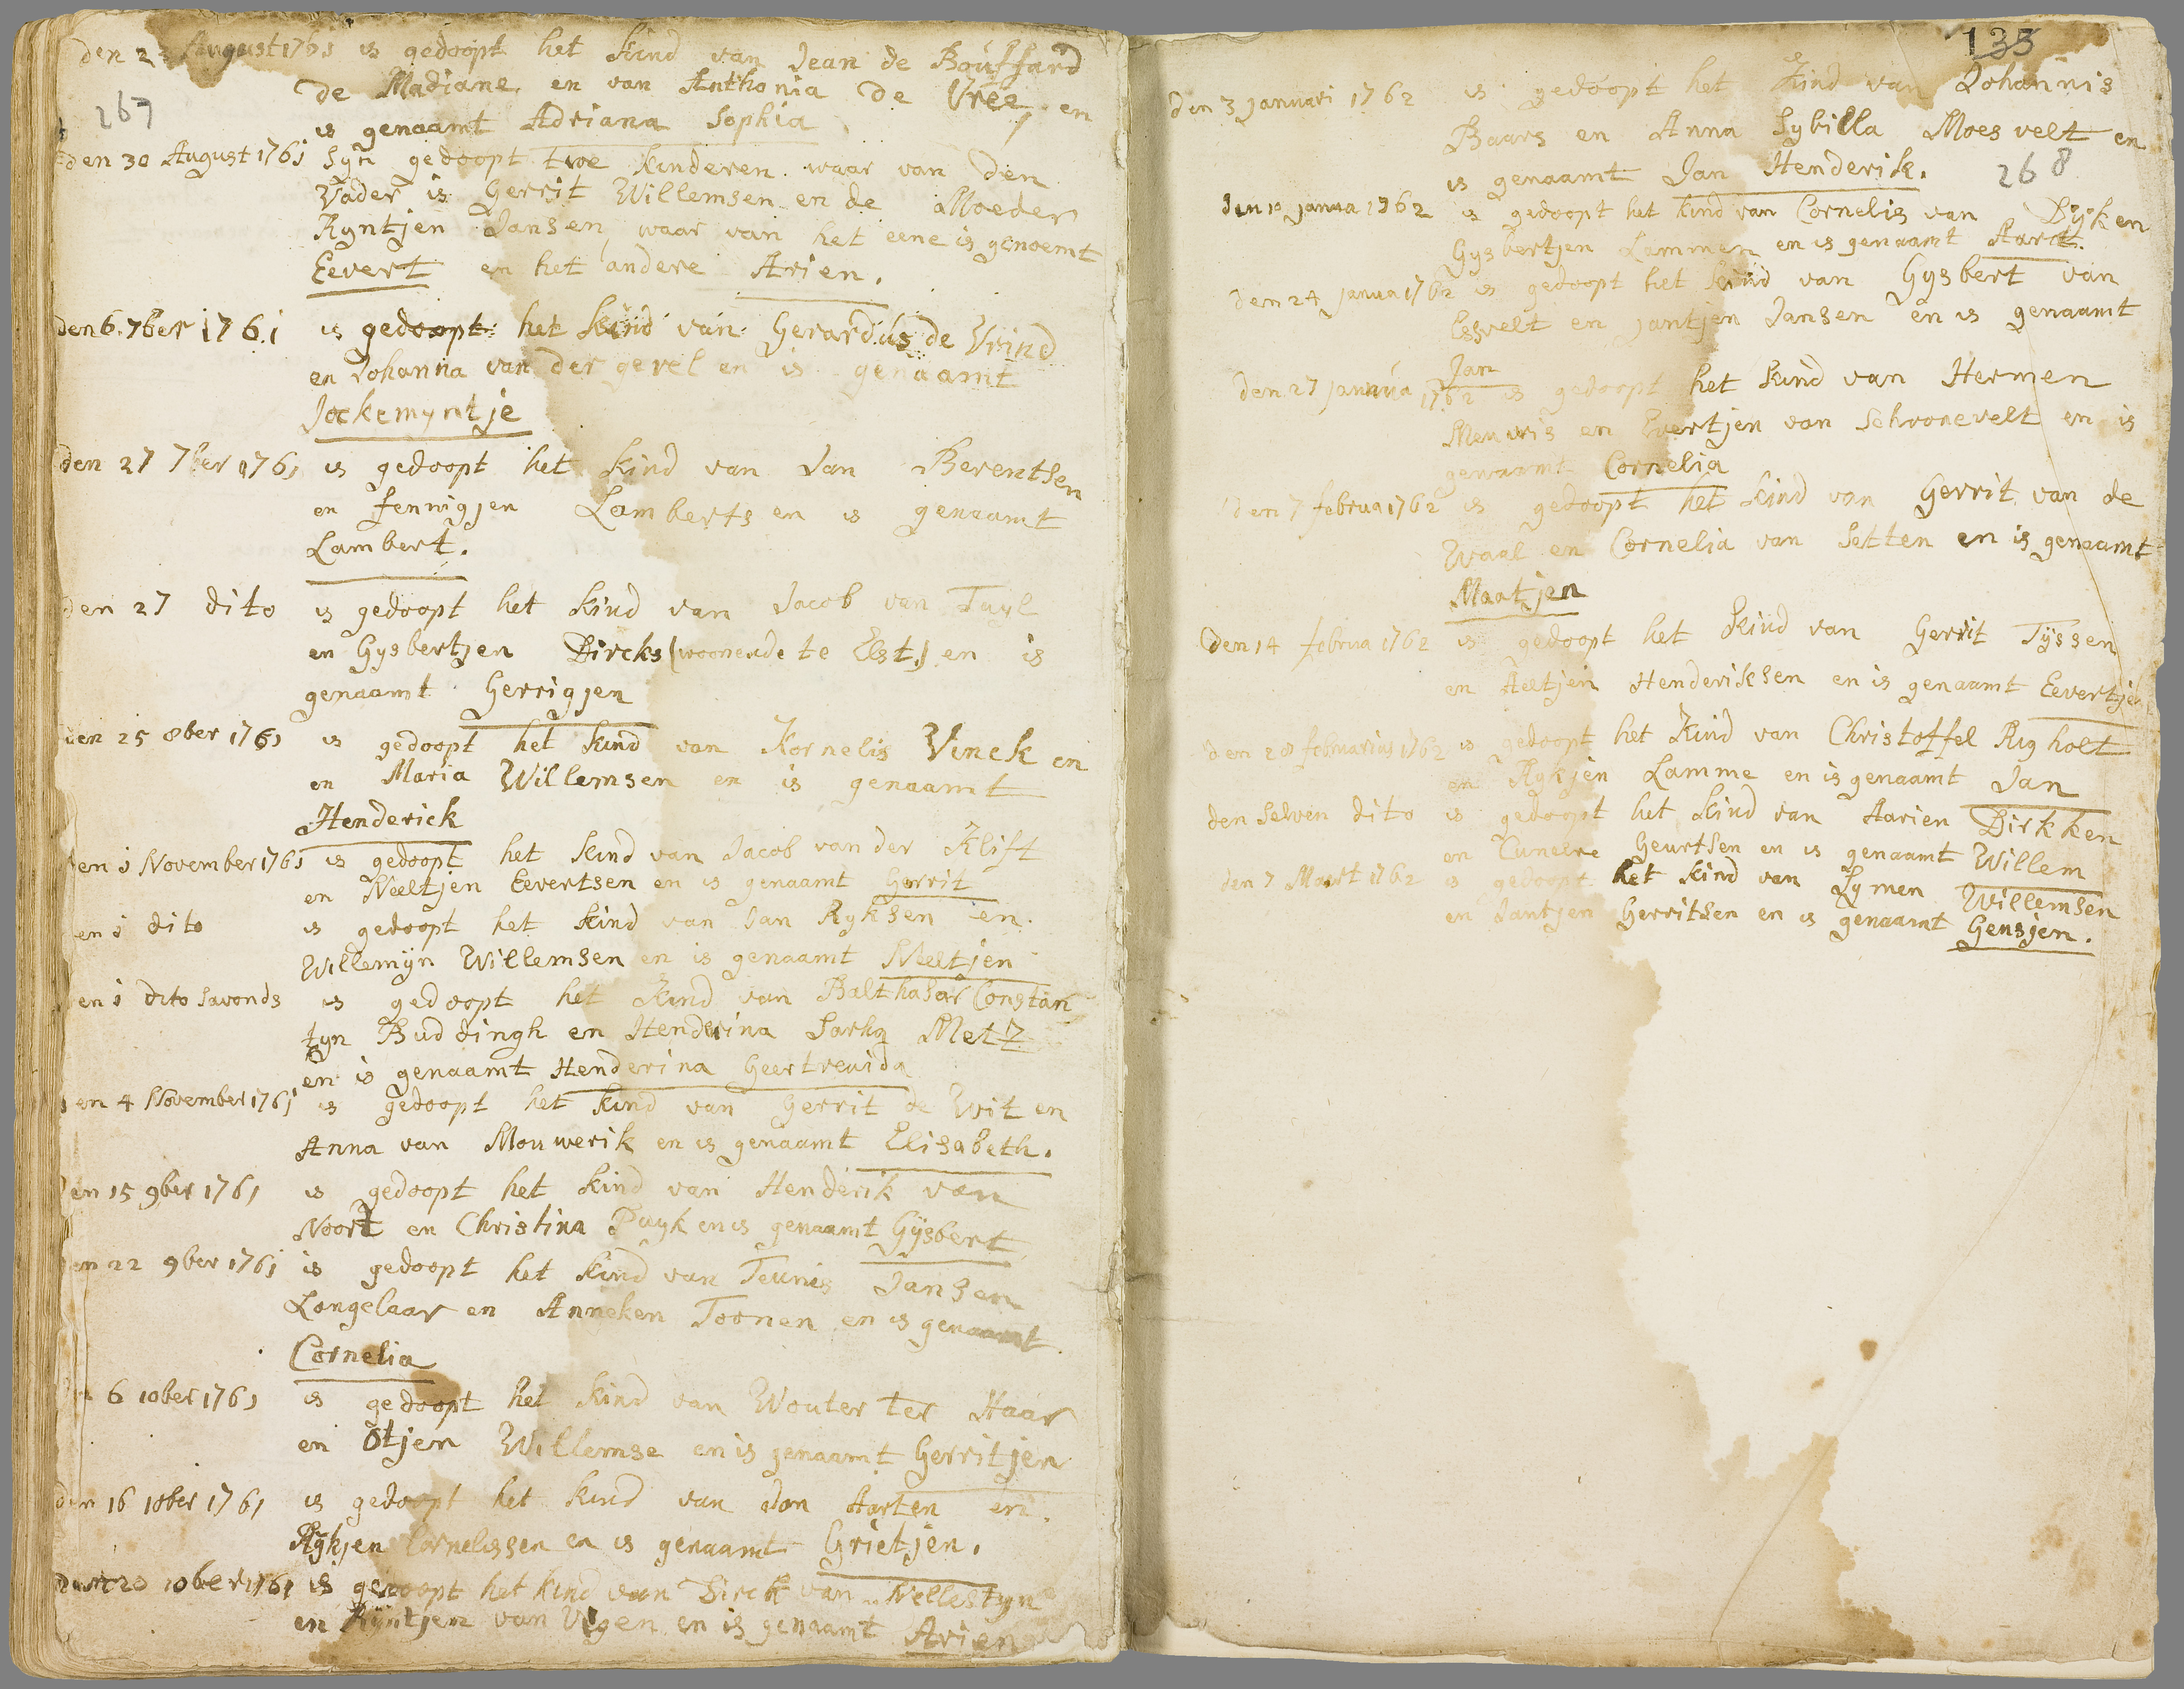 den 23 August 1761 is gedoopt het kind van Jean de Bouffard
de Madiane en van Anthonia de Vree, en
267
is genaamt Adriana Sophia
den 30 August 1761 syn gedoopt twe kinderen waar van den
Vader is Gerrit Willemsen en de Moeder
Ryntjen Jansen waar van het eene is genoemt
Eevert en het andere Arien.
den 6. 7ber 1761 is gedoopt het kind van Gerardus de Vrind
en Johanna van der gevel en is genaamt
Jockemyntje
den 27 7ber 1761 is gedoopt het kind van Jan Berentsen
en fennigjen Lamberts en is genaamt
Lambert.
den 27 dito is gedoopt het kind van Jacob van Tuyl
en Gysbertjen Dircks (woonende te Elst.) en is
genaamt Gerrigjen
den 25 8ber 1761 is gedoopt het kind van Kornelis Vinck en
en Maria Willemsen en is genaamt
Henderick
den 1 November 1761 is gedoopt het kind van Jacob van der Klift
en Neeltjen Eevertsen en is genaamt Gerrit
en 1 dito is gedoopt het kind van Jan Ryksen en
Willemijn Willemsen en is genaamt Neeltjen
en 1 dito savonds is gedoopt het kind van Balthasar Constan
tyn Buddingh en Henderina Sarha Metz
en is genaamt Henderina Geertreuida
en 4 November 1761 is gedoopt het kind van Gerrit de Wit en
Anna van Mouwerik en is genaamt Elisabeth.
en 15 9ber 1761 is gedoopt het kind van Henderik van
Noort en Christina Puyk en is genaamt Gijsbert
en 22 9ber 1761 is gedoopt het kind van Teunis Jansen
Langelaar en Anneken Toonen en is genaamt
Cornelia
6 10ber 1761 is gedoopt het kind van Wouter ter Haar
en Otjen Willemse en is genaamt Gerritjen
den 16 10ber 1761 is gedoopt het kind van Jan Aarten en
Rykjen Cornelissen en is genaamt Grietjen.
den 20 10ber 1761 is gedoopt het kind van Dirck van Nellestyn
en Ryntjen van Vigen en is genaamt Arien
135
den 3 januari 1762 is gedoopt het kind van Johannis
Baars en Anna Sybilla Moesvelt en
is genaamt Jan Henderik.
268
den 10 janua 1762 is gedoopt het kind van Cornelis van Dyk en
Gysbertjen Lammen en is genaamt Aart.
den 24 janua 1762 is gedoopt het kind van Gysbert van
Esvelt en jantjen Jansen en is genaamt
Jan
den 27 janua 1762 is gedoopt het kind van Hermen
Meuwis en Evertjen van Schoonevelt en is
genaamt Cornelia
den 7 februa 1762 is gedoopt het kind van Gerrit van de
Waal en Cornelia van Setten en is genaamt
Maatjen
den 14 februa 1762 is gedoopt het kind van Gerrit Tijssen
en Aeltjen Henderiksen en is genaamt Eevertje
den 28 februarius 1762 is gedoopt het kind van Christoffel Righolt
en Rykjen Lamme en is genaamt Jan
den selven dito is gedoopt het kind van Aarien Dirkken
en Cuneere Geurtsen en is genaamt Willem
den 7 Maart 1762 is gedoopt het kind van Symen Willemsen
en Jantjen Gerritsen en is genaamt Gensjen.